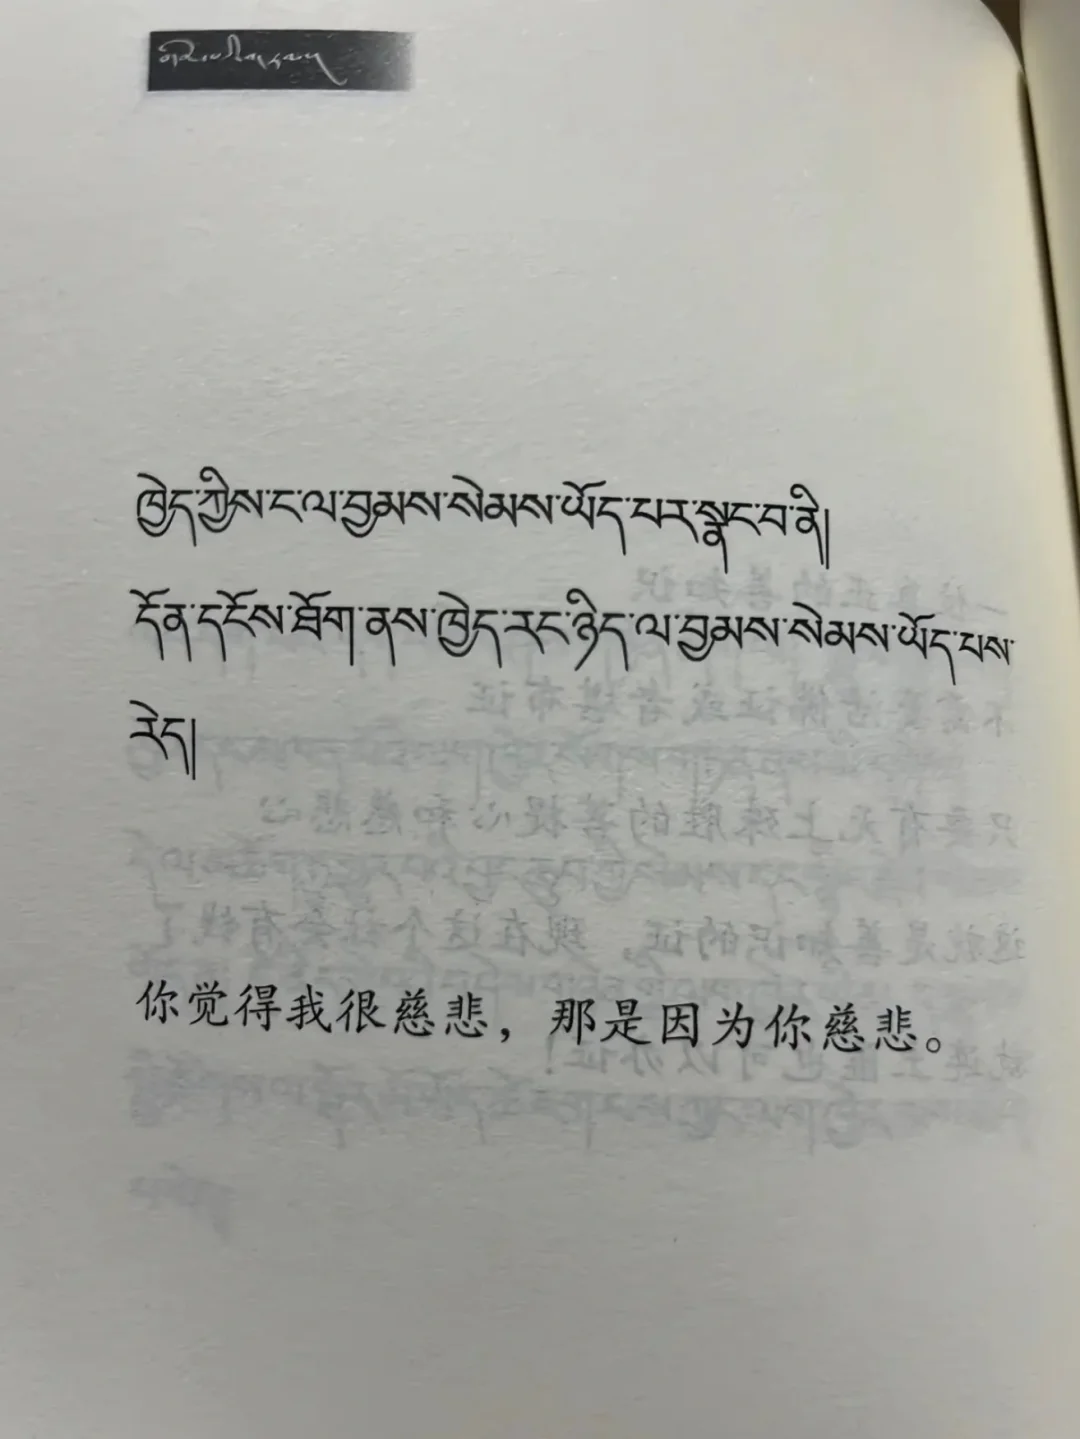 ཁྱེད་ཀྱིས་ང་ལ་བྱམས་སེམས་ཡོད་པར་སྣང་བ་ནི།
དོན་དངོས་ཐོག་ནས་ཁྱེད་རང་ཉིད་ལ་བྱམས་སེམས་ཡོད་པས་
རེད།
你觉得我很慈悲，那是因为你慈悲。